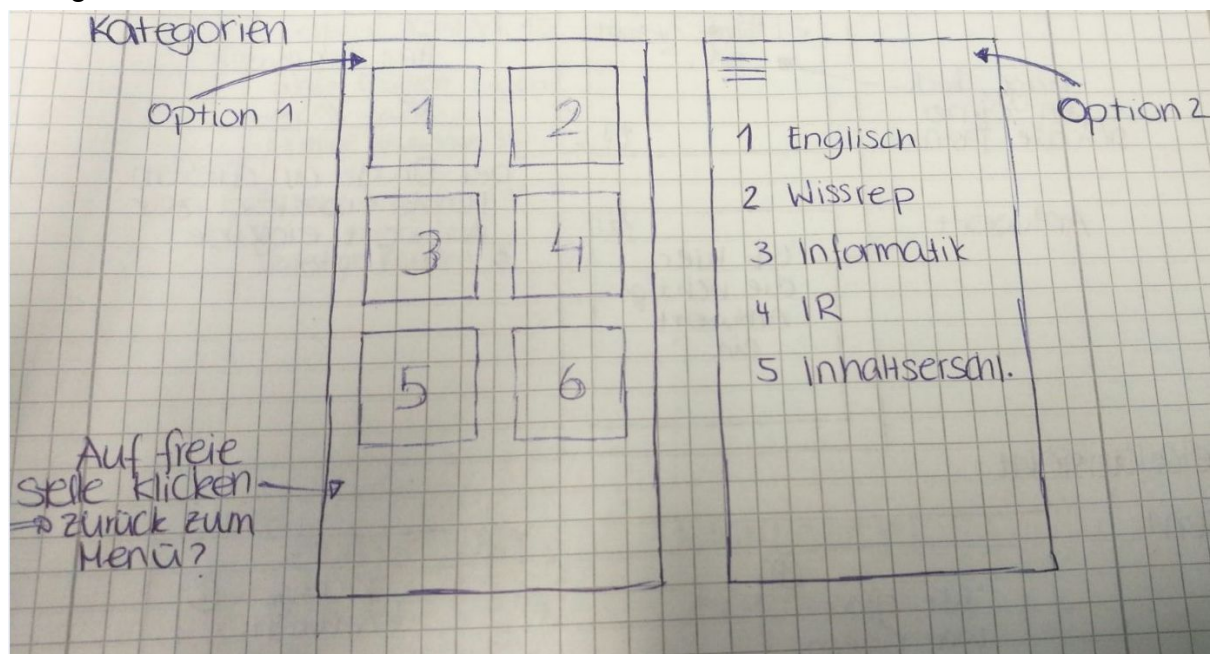 Kategorien
Option 1
1 2
3 4
5 6
Auf freie
Stelle klicken
⇒ zurück zum
Menü?
Option 2
1 Englisch
2 Wissrep
3 Informatik
4 IR
5 Inhaltserschl.